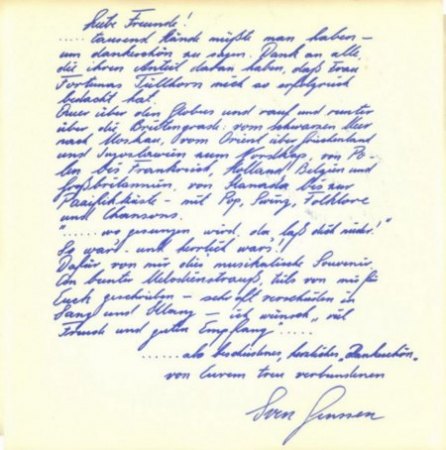 Liebe Freunde!
..... tausend Hände müßte man haben –
um dankeschön zu sagen. Dank an alle,
die ihren Anteil daran haben, daß Frau
Fortunas Füllhorn mich so erfolgreich
bedacht hat.
Quer über den Globus und rauf und runter
über die Breitengrade: vom schwarzen Meer
nach Moskau, vom Orient über Griechenland
und Jugoslawien zum Nordkap, von Po-
len bis Frankreich, Holland, Belgien und
Großbritannien, von Kanada bis zur
Pazifikküste – mit Pop, Swing, Folklore
und Chansons.
"..... wo gesungen wird, da laß dich nieder!"
So war's und herrlich war's!!
Dafür von mir dies musikalische Souvenir.
Ein bunter Melodienstrauß, teils von mir für
Euch geschrieben – sehr oft verschieden in
Sang und Klang – ich wünsch „viel
Freude und guten Empfang" .....
...... als bescheidenes, herzliches „Dankeschön"
von Eurem treu verbundenen
Sven Jenssen